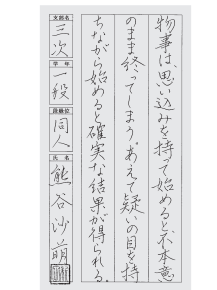 物事は思い込みを持って始めると不本意
のまま終ってしまう。あえて疑いの目を持
ちながら始めると確実な結果が得られる。
支部名
三次
学年
一般
段級位
同人
氏名
熊谷沙萌